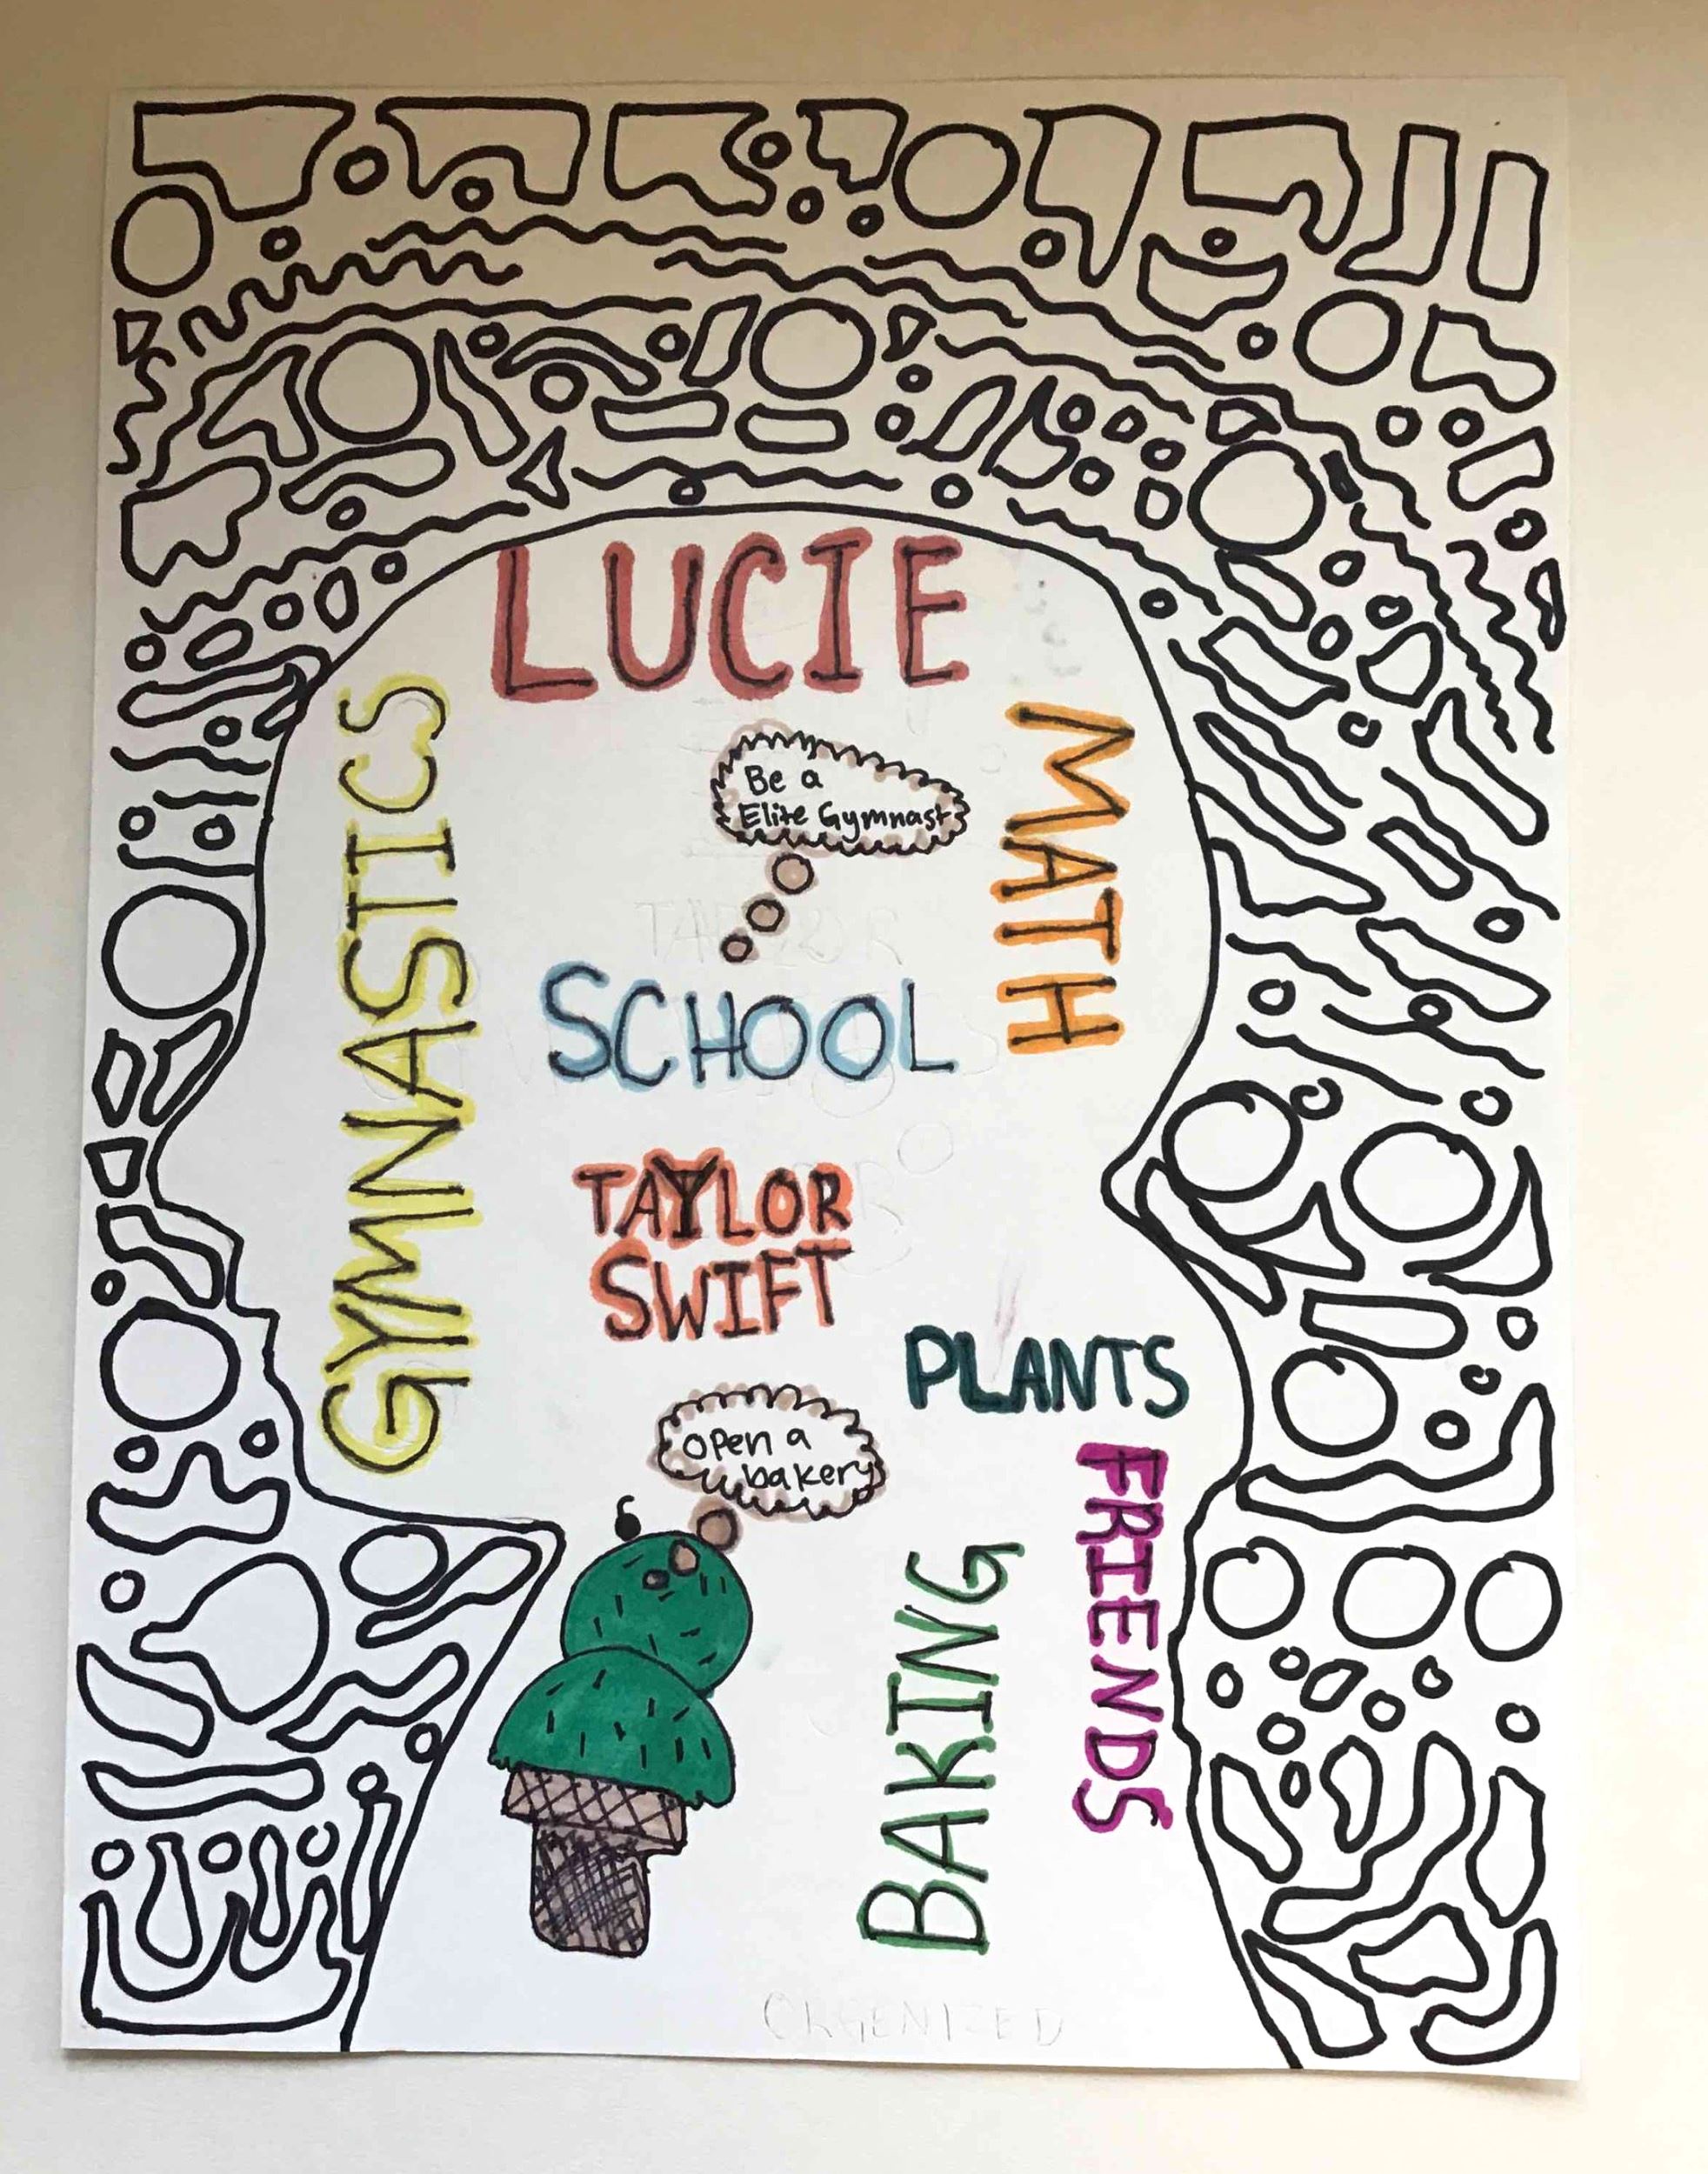 LUCIE
GYMNASTICS
MATH
Be a
Elite Gymnast
TAYLOR
SCHOOL
TAYLOR
SWIFT
PLANTS
Open a
bakery
FRIENDS
BAKING
ORGENIZED